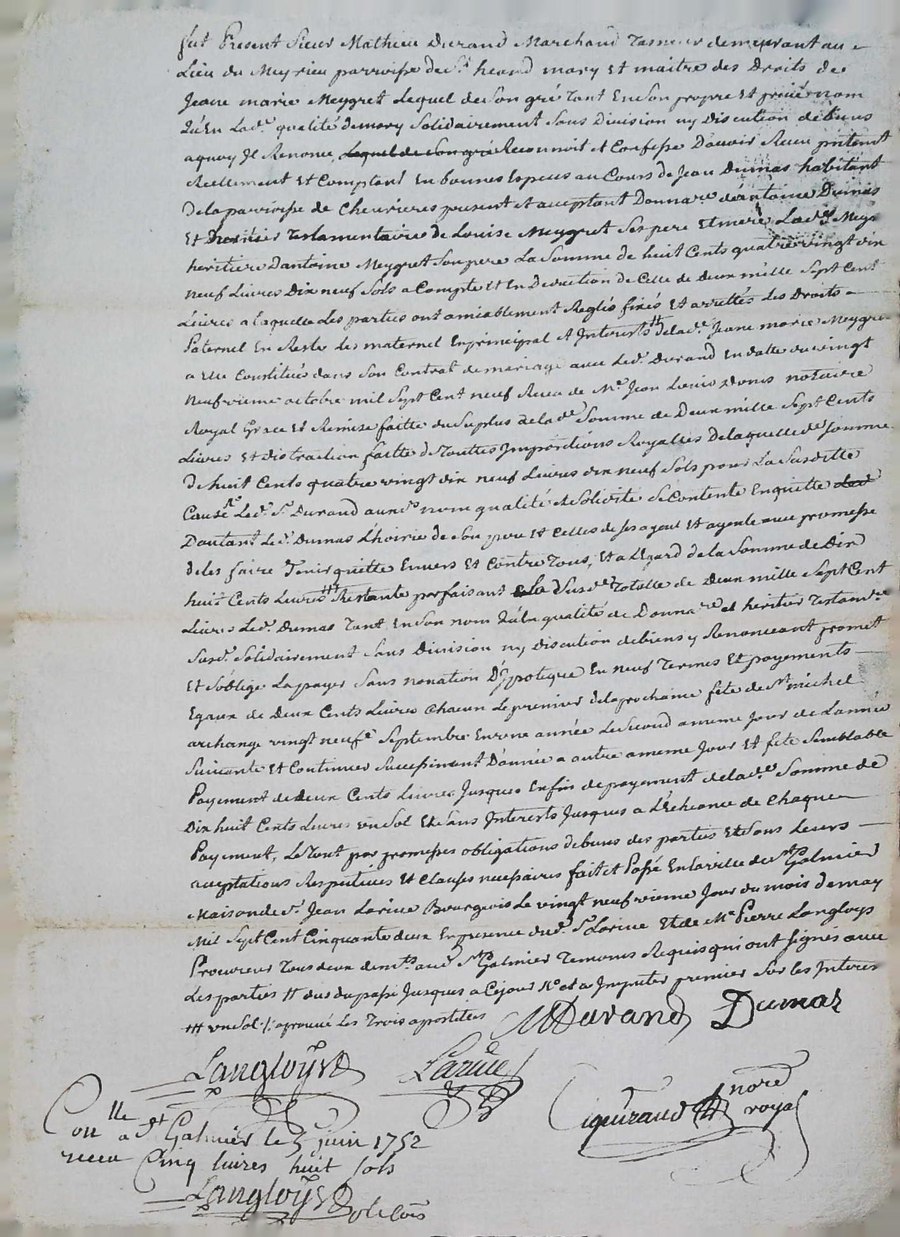 fut Present Sieur Mathieu Durand Marchand Tanneur demeurant au
Lieu du Meyrieu parroisse de St. heand mary Et maitre des Droits de
Jeane marie Meygret Lequel de Son gré Tant En Son propre Et privé nom
Qu'En Lad.e qualité de mary Solidairement Sans Division ny Discution de biens
aquoy Il Renonce Lequel de Son gré Reconnoit Et Confesse D'avoir Receu
Reellement Et Comptant En bonnes Especes au Cours de Jean Dumas habitant
de la parroisse de Chevrieres present Et acceptant Donnare d'antoine Dumas
Et heritier Testamentaire de Louise Meygret Ses pere Et mere Lad.e Meyg.
heritiere D'antoine Meygret Son pere La Somme de huit Cents quatre vingt dix
neuf Livres Dix neuf Sols a Compte Et En Deduction de Celle de deux mille Sept Cent
Livres a laquelle Les parties ont amiablement Reglés fixés Et arrettés Les Droits
Paternel En Reste Les maternel En principal Et Interests # de lad.e Jeane marie Meygret
a Elle Constitués dans Son Contrat de mariage avec Led. Durand En datte du vingt
neufvieme octobre mil Sept Cent neuf Receu de M.e Jean notaire
Royal Grace Et Remise faitte du Surplus de lad.e Somme de Deux mille Sept Cents
Livres Et distraction faitte de Touttes Impositions Royalles De laquelle d.e Somme
de huit Cents quatre vingt dix neuf Livres dix neuf Sols pour La Susditte
Cause Led. Sr. Durand aux nom qualité Et Solidité Se Contente En quitte
D'autant Led. Dumas L'hoirie de Son pere Et Celles de Ses ayeul Et ayeule avec promesse
de les faire Tenir quitte Envers Et Contre Tous, Et a L'Egard de la Somme de Dix
huit Cents Livres Restante parfaisant Susd.e Totalle de Deux mille Sept Cent
Livres Led. Dumas Tant En Son nom Qu'a La qualité de Donnare Et heritier Testam.re
Susd. Solidairement Sans Division ny discution de biens y Renonceant promet
Et S'oblige La payer Sans novation D'ypoteque En neuf Termes Et payements
Egaux de Deux Cents Livres Chacun Le premier de la prochaine fête de St. michel
archange vingt neuf.e Septembre En une année Le Second a meme Jour de L'année
Suivante Et Continuer Successivement D'année a autre a meme Jour Et fête Semblable
Payement de deux Cents Livres Jusques Enfin de payement de lad.e Somme de
Dix huit Cents Livres un Sol Et Sans Interests Jusques a L'Echeance de Chaque
Payement, Le Tout par promesses obligations de biens des parties Et Sous Leurs
acceptations Respectives Et Clauses necessaires fait et Passé En La ville de St. Galmier
Maison de Sr. Jean Larive Bourgeois Le vingt neufvieme Jour du mois de may
Mil Sept Cent Cinquante deux En presence dud. Sr. Larive Et de M.e Pierre Langloys
Procureur Tous deux dem.ts aud. St. Galmier Temoins Requis qui ont Signés avec
Les parties # dus du passé Jusques a Ce jour Et a Imputer premier Sur les Interes
### un Sol /. aprouvé Les Trois apostilles
MDurand Dumas
Langloys Larive
Ciguiraud nore royal
Con.lle a St Galmier le 5 juin 1752
receu Cinq livres huit sols
Langloys